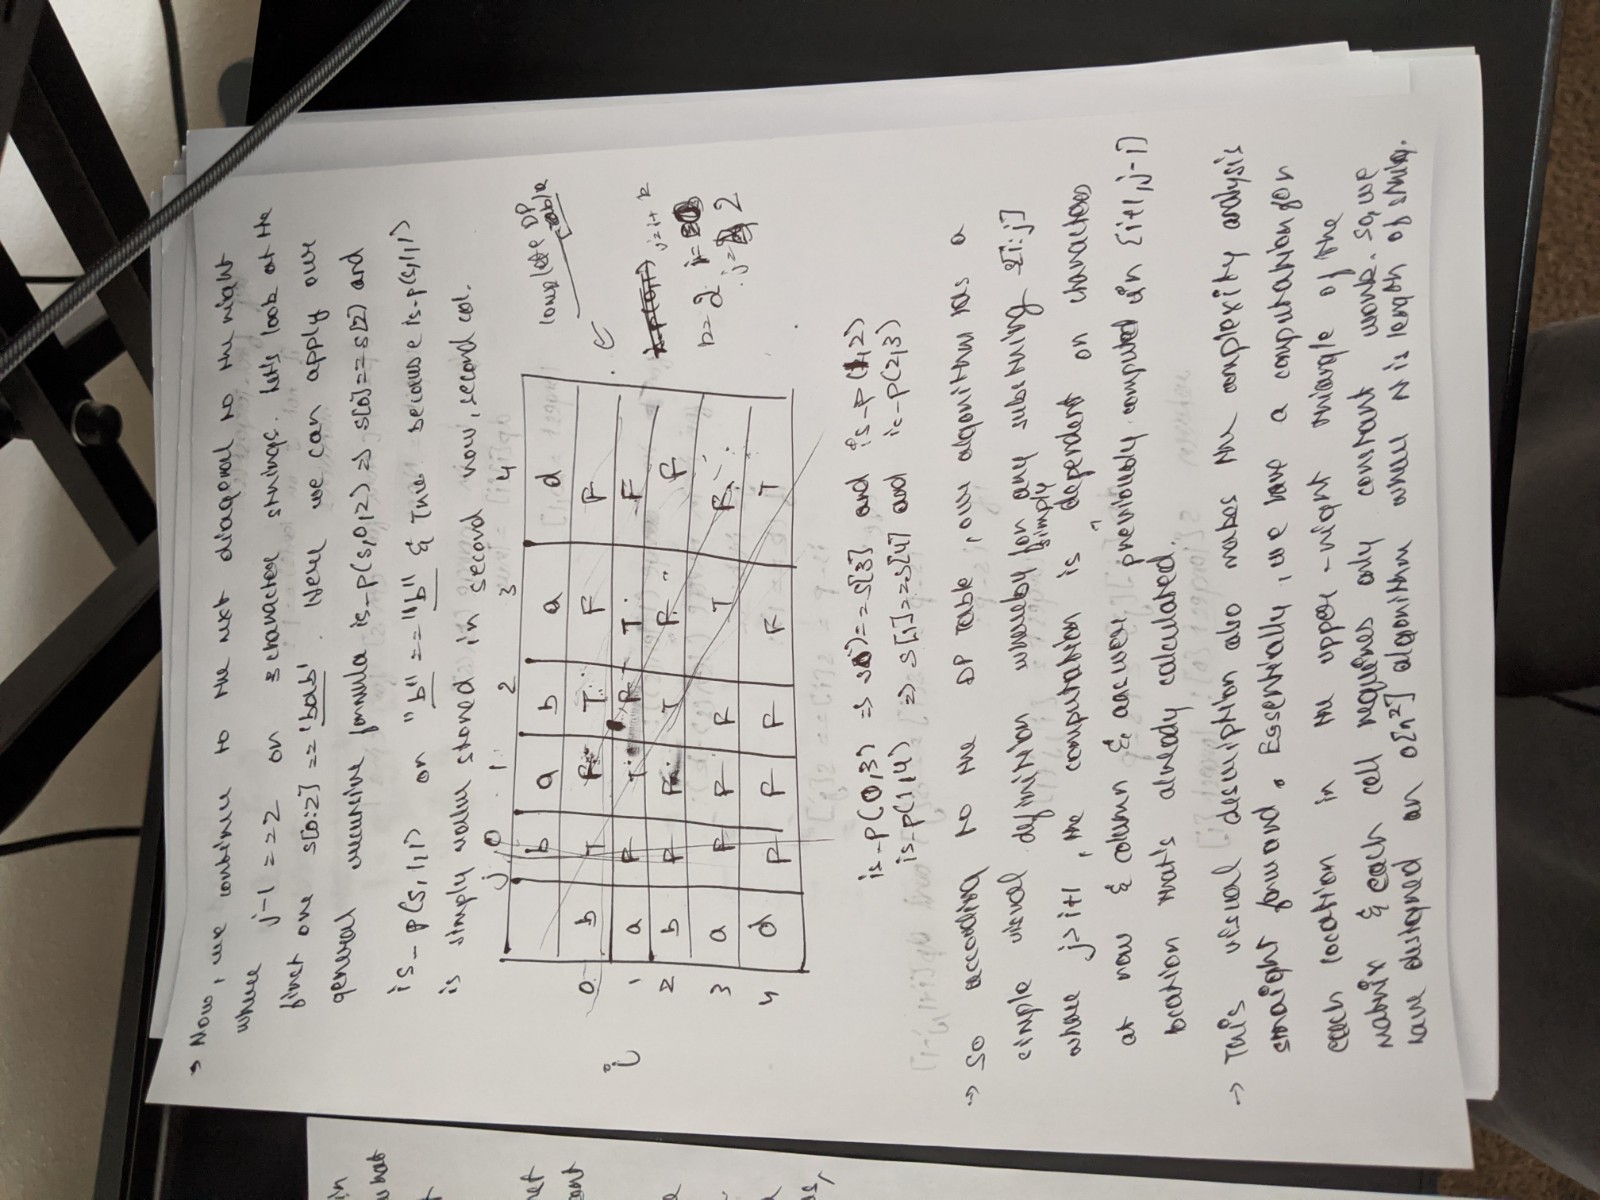 → Now, we continue to the next diagonal to the right
where j-1 == 2 on 3 character strings. let's look at the
first one s[0:2] == 'bab'. Here we can apply our
general recursive formula is-p(s,0,2) => s[0] == s[2] and
is-p(s,1,1) on "b" == "b" & True because is-p(s,1,1)
is simply value stored in second row, second col.
complete DP table
j 0 1 2 3 4
b a b a d
i 0 b T F T F F
1 a F T F T F
2 b F F T F F
3 a F F F T F
4 d F F F F T
j=i+k
k=2 i=0
j=2
is-p(0,3) => s[0]==s[3] and is-p(1,2)
is-p(1,4) => s[1]==s[4] and is-p(2,3)
→ So according to the DP table, our algorithm has a
simple visual definition whereby for any substring s[i:j]
where j>i+1, the computation is simply dependent on characters
at row & column & answer previously computed in [i+1,j-1]
location that's already calculated.
→ This visual description also makes the complexity analysis
straight forward. Essentially, we have a computation for
each location in the upper-right triangle of the
matrix & each cell requires only constant work. So, we
have designed an O[n²] algorithm where N is length of string.
in
what